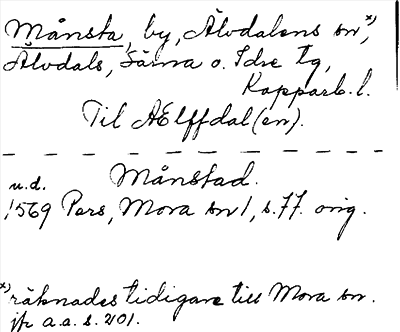 Månsta, by, Älvdalens sn*),
Älvdals, Särna o. Idre tg,
Kopparb. l.
Til AElffdal(en).
u.d. Månstad.
1569 Pers, Mora sn 1, s. 77. orig.
*) räknades tidigare till Mora sn.
jfr a.a. s. 201.